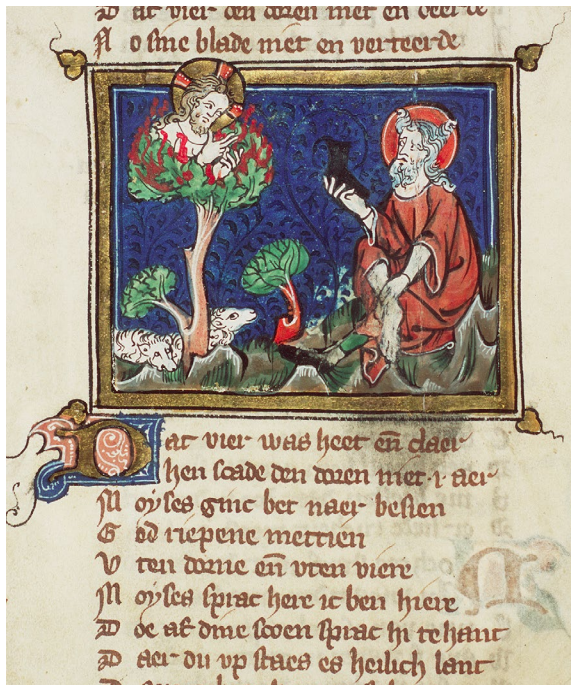 Dat vier den doren niet en deerde
No sine blade niet en verteerde
Dat vier was heet en̄ claer
hen scade den doren niet·i·aer
Moyses ginc bet naer besien
God riepene mettien
Vten dorne en̄ vten viere
Moyses sprac here ic ben hiere
Doe af dine scoen sprac hi tehant
Daer du vp staes es heilich lant